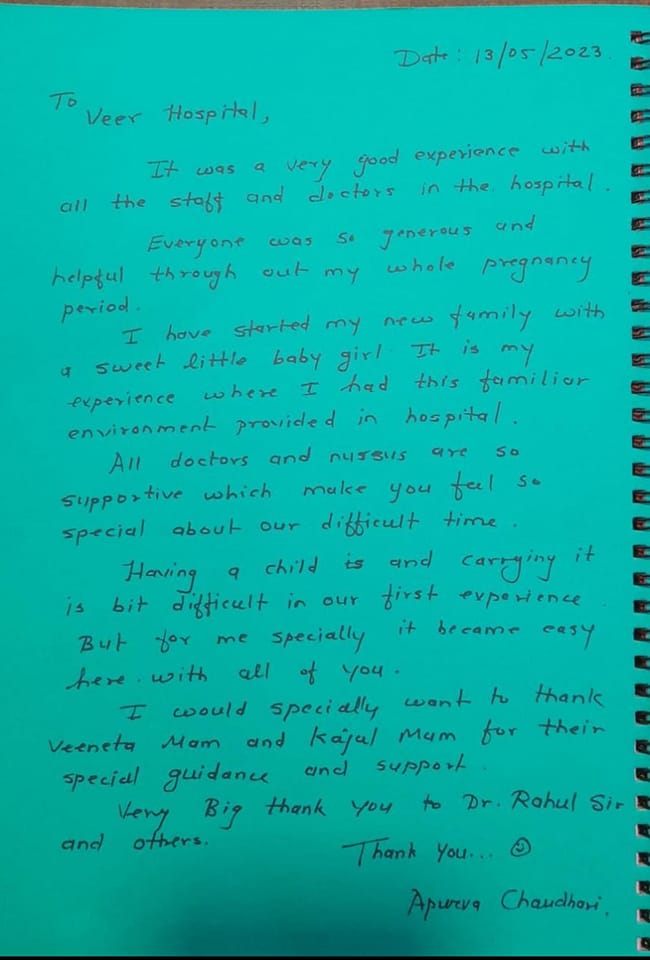 Date: 13/05/2023.
To
Veer Hospital,
It was a very good experience with
all the staff and doctors in the hospital.
Everyone was so generous and
helpful through out my whole pregnancy
period.
I have started my new family with
a sweet little baby girl. It is my
experience where I had this familiar
environment provided in hospital.
All doctors and nursus are so
supportive which make you feel so
special about our difficult time.
Having a child is and carrying it
is bit difficult in our first experience.
But for me specially it became easy
here. with all of you.
I would specially want to thank
Veeneta Mam and Kajal Mam for their
special guidance and support.
Very Big thank you to Dr. Rahul Sir
and others.
Thank you... ☺
Apurva Chaudhari.